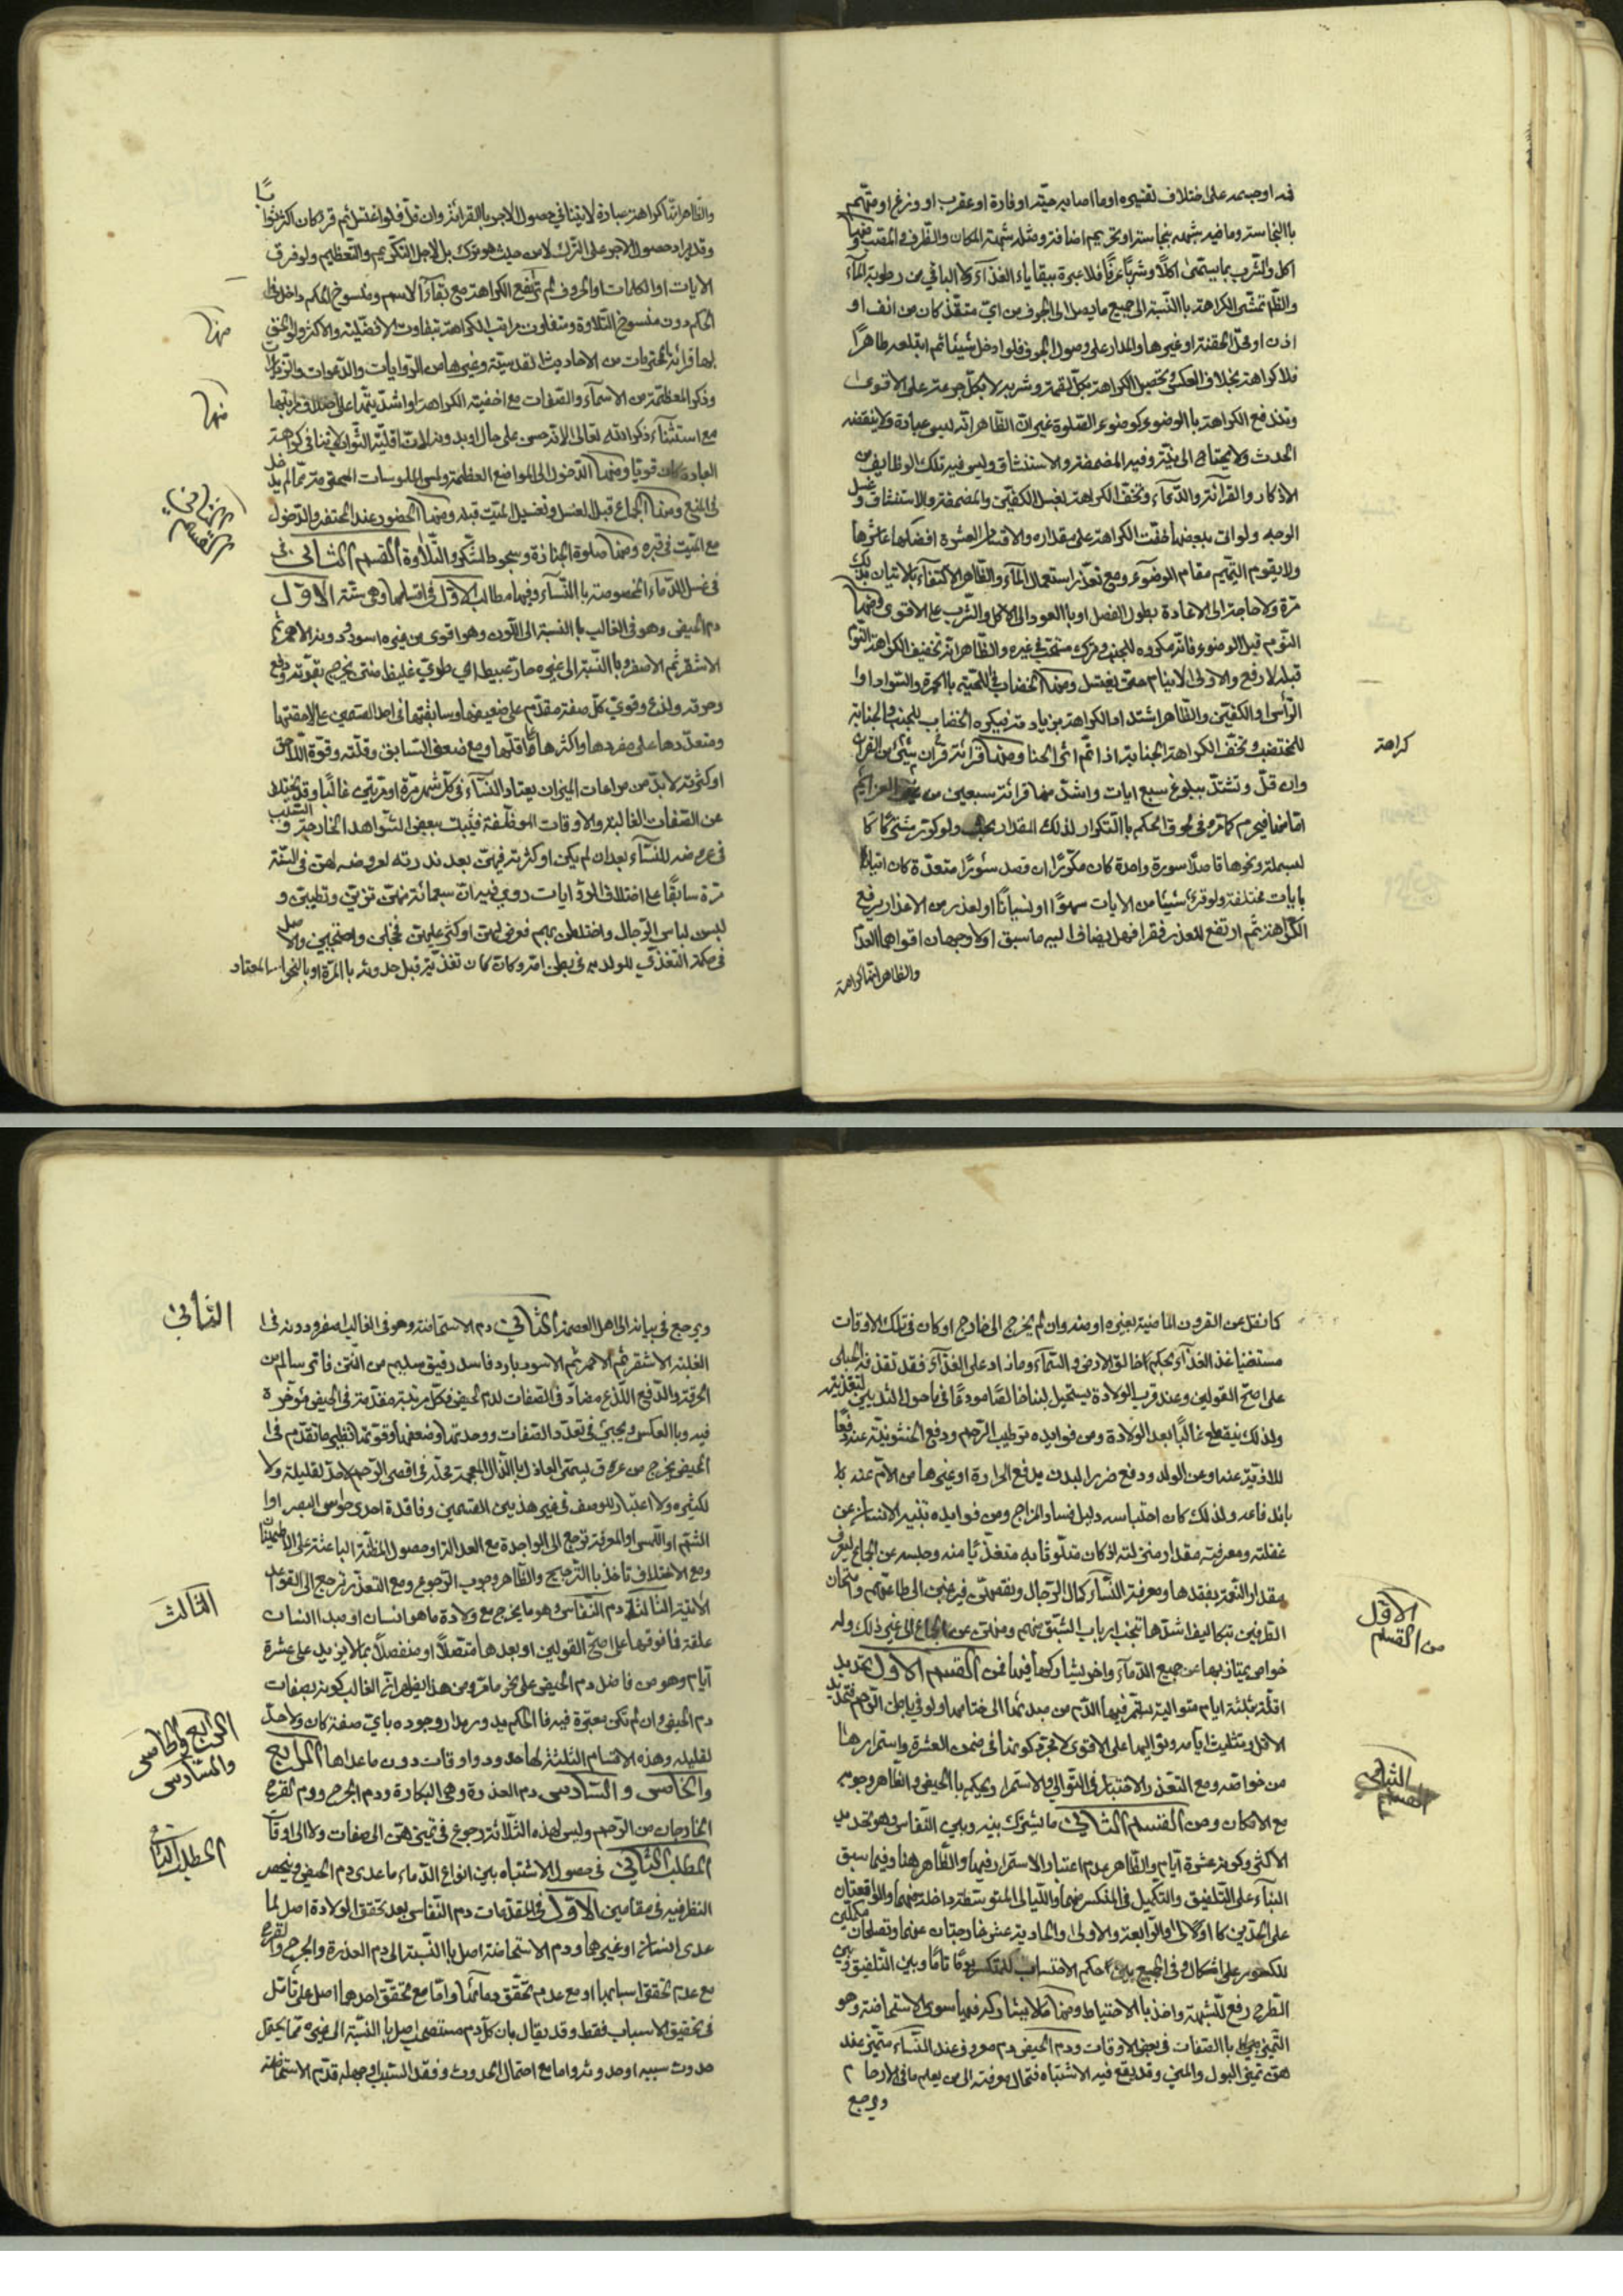 فمه او جسمه على اختلاف تفسيره او ما اصابه حيّة او فارة او عقرب او وزغ او متّهم
باالنجاسة وما فيه شبهة نجاسة او تحريم اضافة ومثله شبهة المكان والظرف في المقتب ومنها
اكل والشرب بما يسمّى اكلاً وشرباً عرفاً فلا عبرة ببقاياء الغذآء ولا الباقي من رطوبة المآء
والظّ تمشّى الكراهة باالنّسبة الى جميع ما يصل الى الجوف من ايّ منفذ كان من انف او
اذن او محلّ الحقنة او غيرها والمدار على وصول الجوف فلو ادخل شيئا ثم ابتلعه طاهراً
فلا كراهة بخلاف العكس وتحصل الكراهة بكلّ لقمة وشربة لا بكلّ جرعة على الاقوى
وتندفع الكراهة باالوضوء كوضوء الصّلوة غير انّ الظّاهر انّه ليس عبادة ولا ينقضه
الحدث ولا يحتاج الى نيّة وفيه المضمضة والاستنشاق وليس فيه تلك الوظايف من
الاذكار والقرائة والدّعآء وتخفّ الكراهة بغسل الكفّين والمضمضة والاستنشاق وغسل
الوجه ولو اتى ببعضها خفّت الكراهة على مقداره والاقسام العشرة افضلها عاشرها
ولا يقوم التيّمم مقام الوضوء ومع تعذّر استعمال المآء والظّاهر الاكتفآء بالاتيان بذلك
مرّة ولا حاجة الى الاعادة بطول الفصل او باالعود الى الاكل والشّرب على الاقوى ومنها
النّوم قبل الوضوء فانّه مكروه للجنب وتركه مستحبّ في غيره والظّاهر انّه تخفيف الكراهة النّوم
قبله لا رفع والاولى الّا ينام حتّى يغتسل ومنها الخضاب في اللّحية باالحمرة والسّواد او ا
الرّأس او الكفّين والظّاهر اشتداد الكراهة بزيادته فيكره الخضاب للجنب والجنابة
للمختضب وتخفّ الكراهة الجنابة اذا تمّ اثر الحنا ومنها قرائة قرآن شيئ من القرآن
وان قلّ وتشتدّ ببلوغ سبع ايات واشدّ منها قرائة سبعين من غير العزايم
امّا منها فيحرم كما مرّ وفي لحوق الحكم باالتّكرار لذلك المقدار بحث ولو كرّر مشتركا كا
لبسملة ونحوها قاصداً سورة واحدة كان مكرّراً وان قصد سوراً متعدّدة كان اتياناً
بايات مختلفة ولو قرء شيئا من الايات سهوًا او نسيانًا او لعذر من الاعذار يرفع
الكراهة ثم ارتفع العذر فقرا فهل يضاف اليه ما سبق اولا وجهان اقواهما العدم
والظاهر انّها كراهة
كراهة
والظّاهر انّها كراهة عبادة لا ينافي حصول الاجر باالقرائة وان قلّ فلو اغتسل ثم قرء كان اكثر ثوابًا
وقد يراد حصول الاجر على التّرك لا من حيث هو ترك بل لاجل التّكريم والتّعظيم ولو فرق
الايات او الكلمات والحروف لم ترتفع الكراهة مع بقآء الاسم ومنسوخ الحكم داخل في
الحكم دون منسوخ التّلاوة ويتفاوت مراتب الكراهة بتفاوت الافضليّة والاكثر والحق
بها قرائة المحترمات من الاحاديث القدسيّة وغيرها من الرّوايات والدّعوات والزّيارات
وذكر المعظّمة من الاسمآء والصّفات مع اخفيّة الكراهة او اشدّيّتها على اختلاف مراتبها
مع استثنآء ذكر اللّه تعالى لانّه حسن على حال او بدونه لانّ اقليّة الثّواب لا ينافي كراهة
العبادة كان قويّا ومنها الدّخول الى المواضع المعظّمة ولمس الملبوسات المحترمة ممّا لم يدخل
في المنع ومنها الجماع قبل الغسل وتغسيل الميّت قبله ومنها الحضور عند المحتضر والدّخول
مع الميّت في قبره ومنها صلوة الجنازة وسجود الشّكر والتّلاوة القسم الثاني في
في غسل الدّمآء المخصوصة باالنّسآء وفيها مطالب الاوّل في اقسامها وهي ستّة الاوّل
دم الحيض وهو في الغالب باالنسبة الى اللّون وهو اقوى من غيره اسود ودونه الاحمر ثم
الاشقر ثم الاصفر وباالنّسبة الى غيره حارّ عبيط اي طريّ غليظ منتن يخرج بقوّة ودفع
وحرقة ولذع وقويّ كلّ صفة مقدّم على ضعيفها وسابقتها في احد القسمين على لاحقتها
ومتعدّدها على مفردها واكثرها على اقلّها ومع ضعف السّابق وقلّته وقوّة اللّاحق
او كثرته لا بدّ من مراعات الميزان يعتاد النّسآء في كلّ شهر مرّة او مرّتين غالبًا وقد يختلط
عن الصّفات الغالبة والاوقات الموظّفة فيثبت ببعض الشّواهد الخارجيّة والسّبب
في عروضه للنّسآء بعد ان لم يكن او كثرته فيهنّ بعد ندرته لعروضه لهنّ في السّنة
مرّة سابقًا على اختلاف الرّوايات روي فيه انّ سبعمائة منهنّ تزيّن وتطيّبن و
لبسن لباس الرّجال واختلطن بهم فعرض لهنّ او كثر عليهنّ فخجلن واحتجبن والاصل
في حكمة التّغذّي للولد به في بطن امّه وكان تغذّيه قبل حدوثه باالمرّة او بالنّحو المعتاد
منها
منها
الثاني من القسم
كما نقل عن القرون الماضية بغيره او منه وان لم يخرج الى خارج او كان في تلك الاوقات
مستغنيا عن الغذآء بحكم خالق الارض والسّمآء وما زاد على الغذآء فقد تقذفه الحبلى
على اصحّ القولين وعند قرب الولادة يستحيل لبنا خالصًا مودعًا في ما حول الثّديين لتغذيته
ولذلك ينقطع غالبًا بعد الولادة ومن فوايده ترطيب الرّحم ودفع الخشونيّة عنه دفعًا
للاذيّة عنه وعن الولد ودفع ضرر البدن بدفع الحرارة او غيرها من الالآم عنه با
باندفاعه ولذلك كان احتباسه دليل فساد المزاج ومن فوايده تنبيه الانسان عن
غفلته ومعرفته مقدار منزلته اذ كان متلوّثًا به متغذّيًا منه وحبسه عن الجماع ليعرف
مقدار النّعمة بفقدها ومعرفة النّسآء كمال الرّجال ونقصهنّ فيرغبن الى طاعتهم وامتحان
الطّرفين بتكاليف اشدّها تجنّب ارباب الشّبق منهم ومنهنّ عن الجماع الى غير ذلك وله
خواص يمتاز بها عن جميع الدّمآء واخر يشاركها فيها فمن القسم الاوّل تحديد
اقلّه بثلثة ايام متوالية يستمرّ فيها الدّم من مبدئها الى ختامها ولو في باطن الرّحم فتحديد
الاقل بتثليث ايامه وتواليها على الاقوى لا لمجرّد كونها في ضمن العشرة واستمرارها
من خواصّه ومع التعذّر الاختبار في التّوالي والاستمرار ويحكم باالحيض والظّاهر وجوبه
مع الامكان ومن القسم الثّاني ما يشترك بينه وبين النّفاس وهو تحديد
الاكثر وكونه عشرة ايّام والظّاهر عدم اعتبار الاستمرار فيها والظّاهر هنا وفيما سبق
البنآء على التّلفيق والتّكميل في المنكسر منها واللّيالي المتوسّطة داخلة فيها والواقعتان
على الحدّين كالاولى والرّابعة والاولى والحادية عشر خارجتان عنها وتصلحان مكمّلتين
للكسور على اشكال وفي الجميع بين حكم الاحتساب للمنكسر يومًا تامًا وبين التّلفيق وبين
الطّرح رفع للشّبهة واخذ باالاحتياط ومنها ما لا يشاركه فيها سوى الاستحاضة وهو
التّميّز باالصّفات في بعض الاوقات ودم الحيض دم معروف عند النّسآء متميّز عند
هنّ تميّز البول والمني وقد يقع فيه الاشتباه فتحال معرفته الى من يعلم ما في الارحام
ويرجع
الاوّل من القسم
الثاني القسم
ويرجع في بيانه الى اهل العصمة الثّاني دم الاستحاضة وهو في الغالب اصفر ودونه في ا
الغلبة الاشقر ثم الاحمر ثم الاسود بارد فاسد رقيق سليم من النّتن فاتر سالم من
الحرقة والدّفع اللّذع مضادّ في الصّفات لدم الحيض فكلّ مرتبة مقدّمة في الحيض مؤخّرة
فيه وباالعكس ويجيئ في تعدّد الصّفات ووحدتها وضعفها وقوّتها نظير ما تقدّم في ا
الحيض يخرج من عرق يسمّى العاذل باالذّال المعجمة محلّه في اقصى الرّحم لا حدّ لقليله ولا
لكثيره ولا اعتبار للوصف في غير هذين القسمين وفاقدة احدى حواس البصر او ا
الشّم او اللّمس او المعرفة ترجع الى الواجدة مع العدالة او حصول المظنّة الباعثة على الاطمينان
ومع الاختلاف تاخذ باالتّرجيح والظّاهر وجوب الرّجوع ومع التعذّر ترجع الى القواعد
الاتية الثّالث دم النّفاس وهو ما يخرج مع ولادة ما هو انسان او مبدء انسان
علقة فما فوقها على اصحّ القولين او بعدها متّصلاً او منفصلاً بما لا يزيد على عشرة
ايّام وهو من فاضل دم الحيض على نحو ما مرّ ومن هنا يظهر انّ الغالب كونه بصفات
دم الحيض وان لم تكن معتبرة فيه فاالحكم يدور مدار وجوده باي صفة كان ولا حدّ
لقليله وهذه الاقسام الثلثة لها حدود واوقات دون ما عداها الرّابع
والخامس والسّادس دم العذرة وهي البكارة ودم الجرح ودم القرح
الخارجان من الرّحم وليس لهذه الثّلاثة رجوع في تميزهنّ الى صفات ولا الى اوقات
المطلب الثّاني في حصول الاشتباه بين انواع الدّماء ما عدى دم الحيض وينحصر
النظر فيه في مقامين الاوّل في المقدّمات دم النّفاس بعد تحقق الولادة اصل لما
عدى انسان او غيرهما ودم الاستحاضة اصل باالنّسبة الى دم العذرة والجرح والقرح
مع عدم تحقق اسبابها او مع عدم تحقّق دمائها وامّا مع تحقّق احدهما اصل على تامّل
في تحقيق الاسباب فقط وقد يقال بان كلّ دم مستصحب اصل باالنّسبة الى غيره ممّا يحتمل
حدوث سببه او حدوثه واما مع احتمال الحدوث وفقد السّبب او جهله قدّم الاستحاضة
الثّاني
الثّالث
الرّابع والخامس
والسّادس
المطلب الثّاني